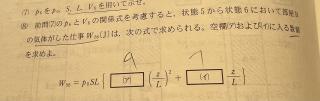 (7) p₅をp₀, S, L, V₅を用いて示せ。
(8) 前問(7)のp₅とV₅の関係式を考慮すると、状態5から状態6において部屋B
の気体がした仕事W₅₆〔J〕は、次の式で求められる。空欄(ア)および(イ)に入る数値
を求めよ。
9 7
W₅₆ = p₀SL { (ア) (z/L)² + (イ) z/L }